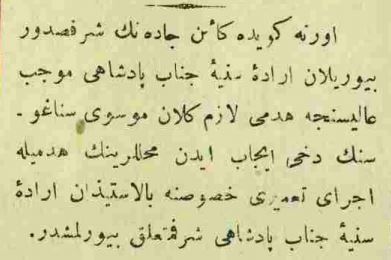 اورته کویده کائن جاده‌نك شرفصدور
بیوریلان ارادهٔ سنیهٔ جناب پادشاهی موجب
عالیسنجه هدمی لازم کلان موسوی سناغو-
سنك دخی ایجاب ایدن محللرینك هدمیله
اجرای تعمیری خصوصنه بالاستیذان ارادهٔ
سنیهٔ جناب پادشاهی شرفتعلق بیورلمشدر.